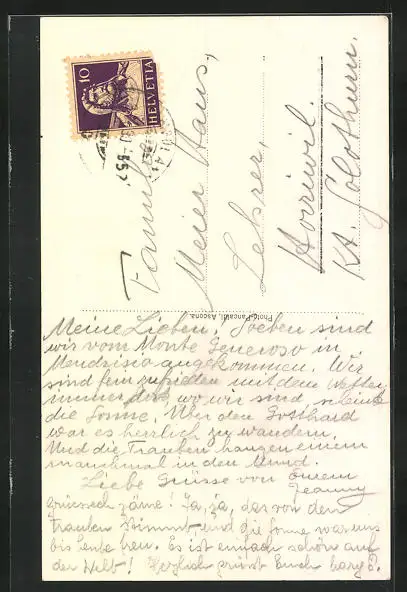 10
HELVETIA
Familie
Meier Hans,
Lehrer,
Horriwil.
Kt. Solothurn.
Photo-Pancaldi, Ascona
Meine Lieben! Soeben sind
wir vom Monte Generoso in
Mendrisio angekommen. Wir
sind sehr zufrieden mit dem Wetter,
immer dort wo wir sind, scheint
die Sonne. Über den Gotthard
war es herrlich zu wandern.
Und die Trauben hangen einem
manchmal in den Mund.
Liebe Grüsse von Eurem
Jeanny
zäme! Ja, ja, das von den
Trauben stimmt, und die Sonne war uns
bis heute treu. Es ist einfach schön auf
der Welt! Herzlich grüsst Euch